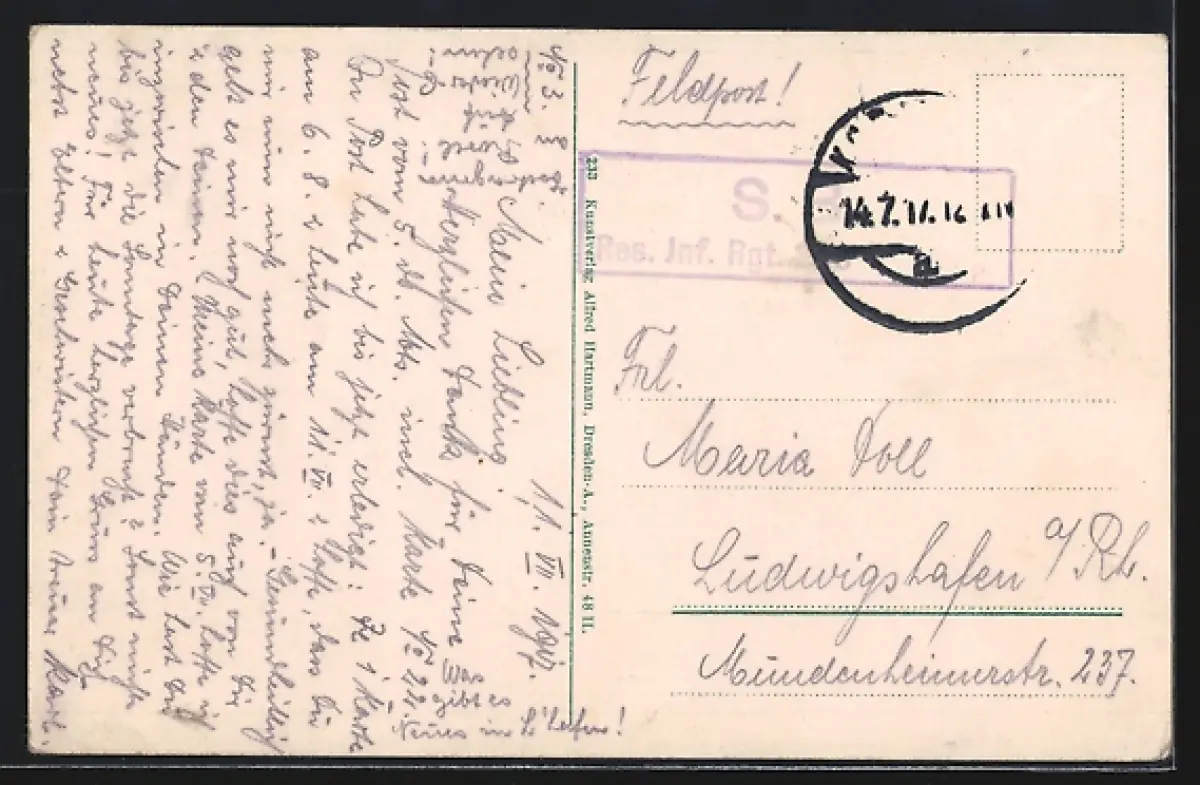 Feldpost!
S.
Res. Inf. Rgt.
14.7.17.
Frl.
Maria Doll
Ludwigshafen a/Rh.
Mundenheimerstr. 237.
233 Kunstverlag Alfred Hartmann, Dresden-A., Annenstr. 48 II.
No 3.
11. VII. 1917.
Mein Liebling!
herzlichen Dank für Deine
Post vom 5. ds. Mts. incl. Karte No 22.
An Post habe ich bis jetzt erledigt: Je 1 Karte
am 6. 8. & heute am 11. VII. & hoffe, dass Du
mir nun nicht mehr zürnst, ja. - Gesundheitlich
geht es mir noch gut, hoffe dies auch von Dir
& den Deinen. Meine Karte vom 5. VII. hoffe ich
inzwischen in Deinen Händen. Wie hast Du
bis jetzt die Sonntage verbracht? Sonst nichts
neues! Für heute herzlichen Gruss an Dich
nebst Eltern & Geschwistern Dein treuer Karl.
Was
gibt es
Neues in L'hafen!